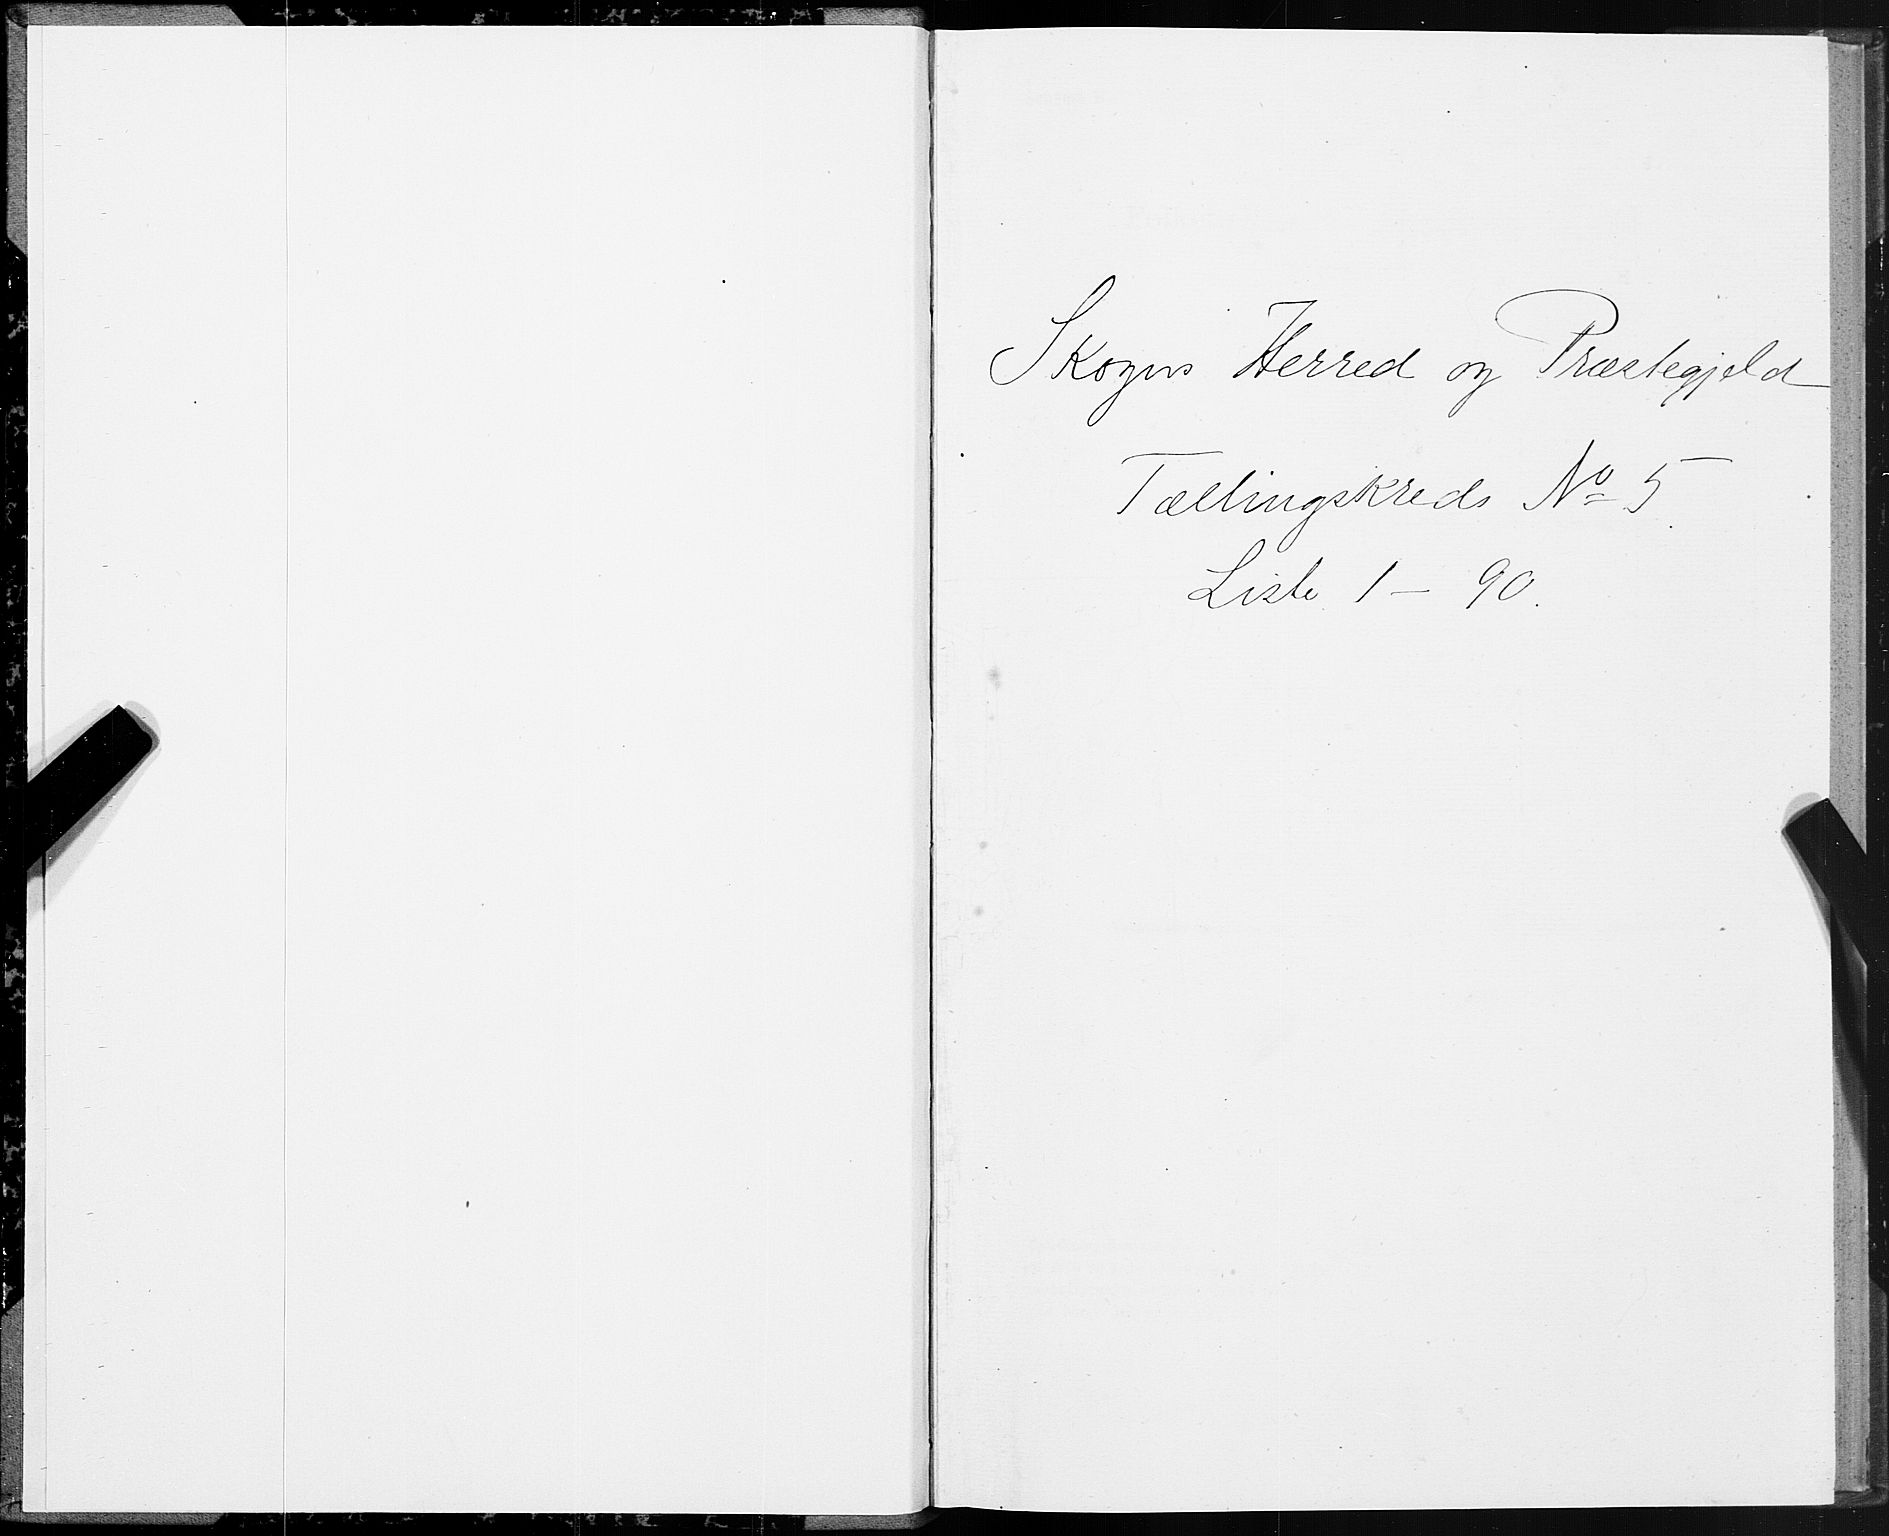 Skogns Herred og Præstegjeld
Tællingskreds No 5.
Liste 1 - 90.